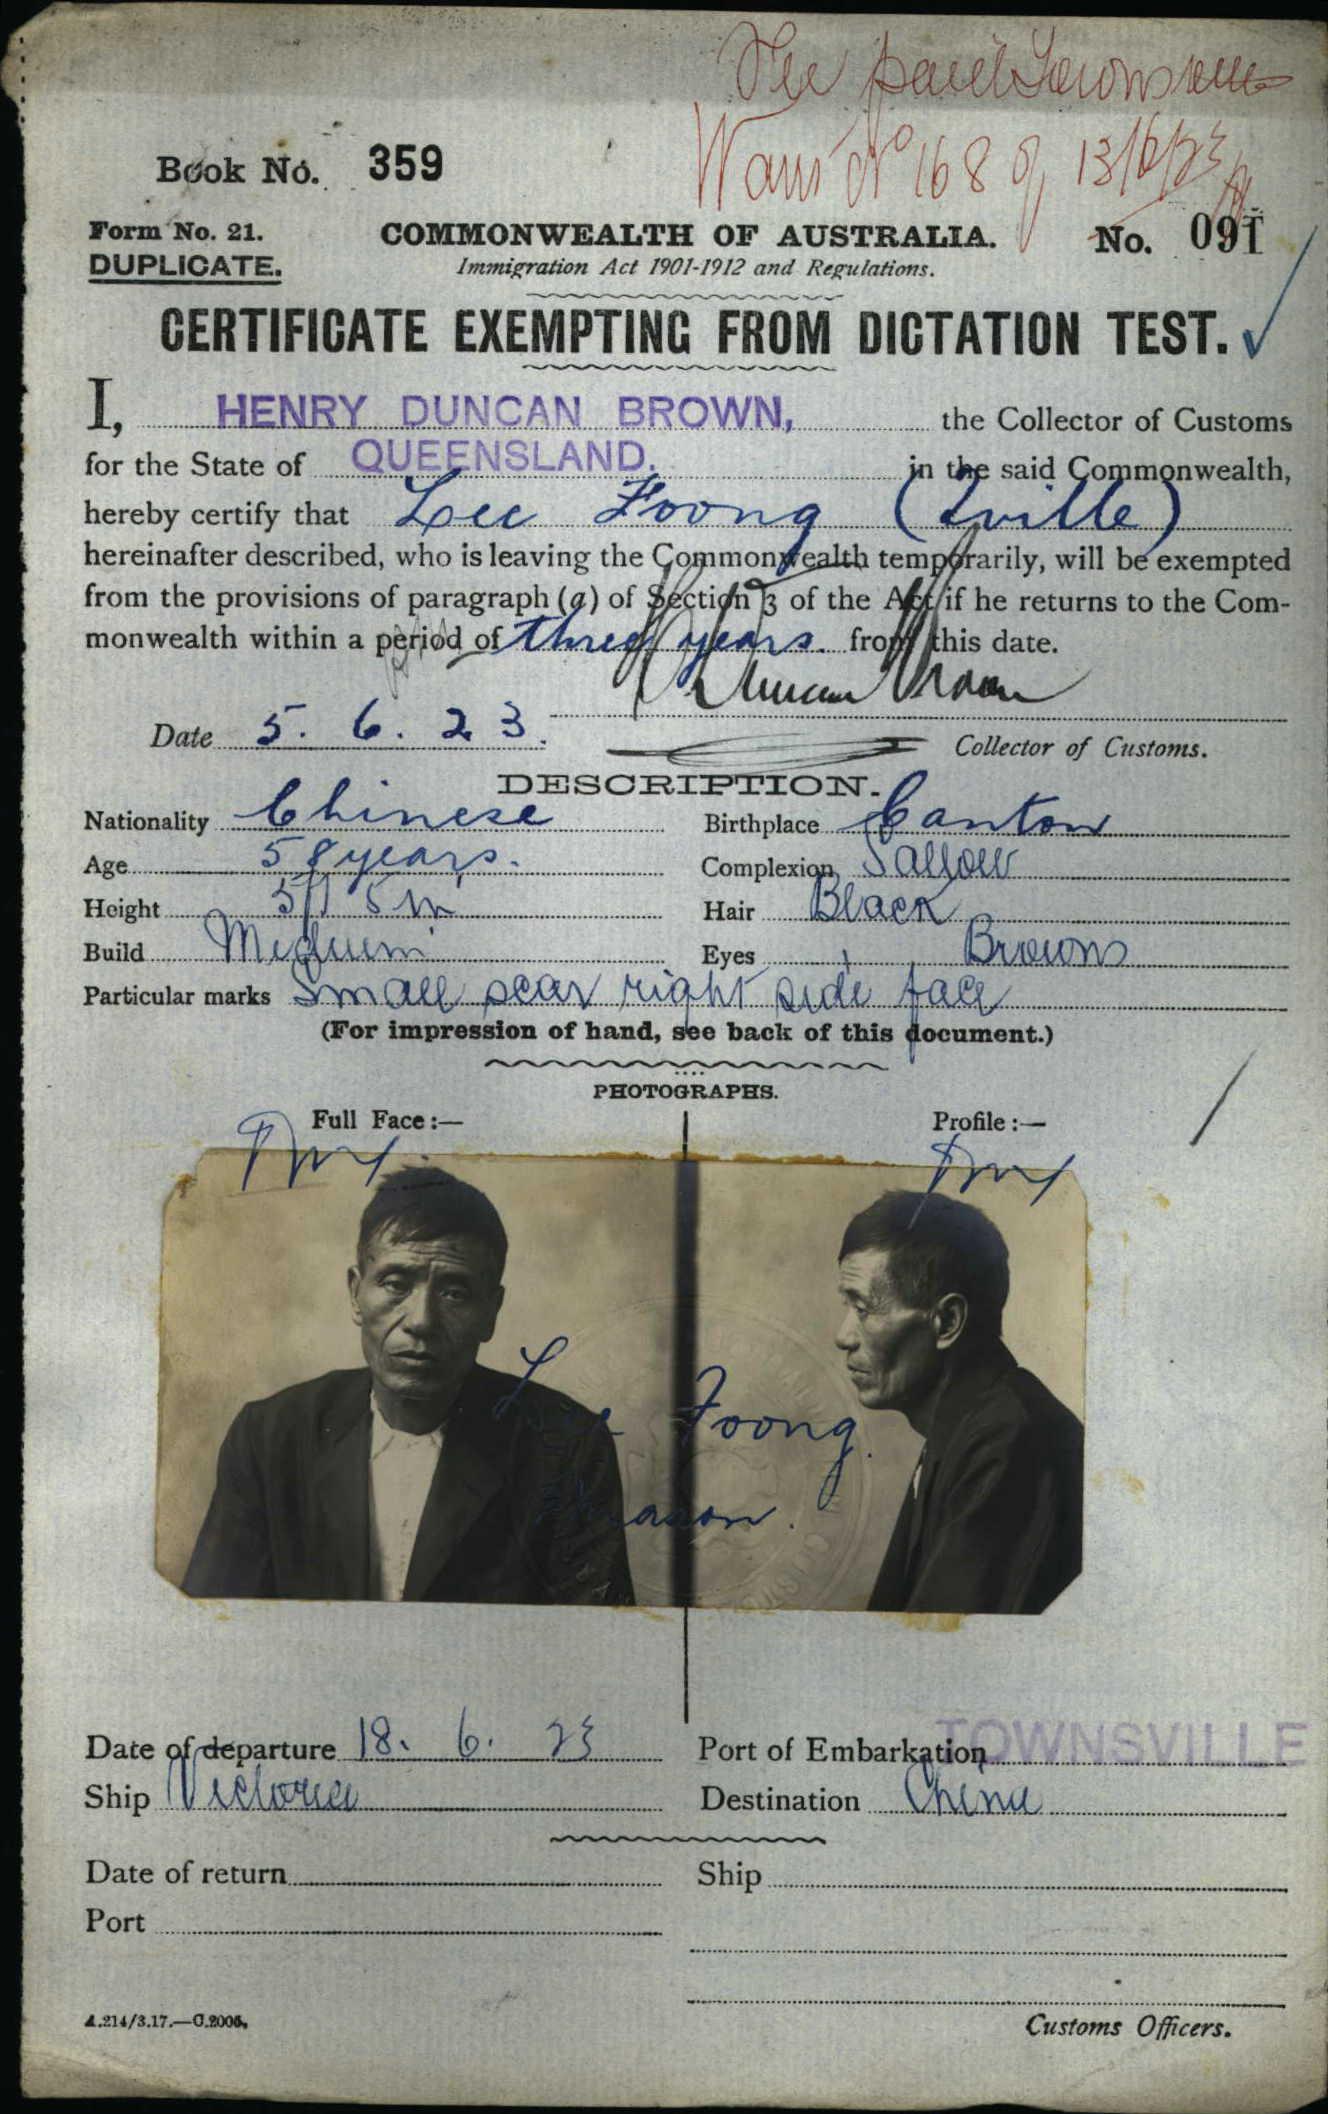 Fee paid Townsville
Warrt No 168 of 13/6/23
Book No. 359
Form No. 21.
DUPLICATE.
COMMONWEALTH OF AUSTRALIA.
Immigration Act 1901-1912 and Regulations.
No. 091
CERTIFICATE EXEMPTING FROM DICTATION TEST.
I, HENRY DUNCAN BROWN, the Collector of Customs
for the State of QUEENSLAND. in the said Commonwealth,
hereby certify that Lee Foong (Tville)
hereinafter described, who is leaving the Commonwealth temporarily, will be exempted
from the provisions of paragraph (a) of Section 3 of the Act if he returns to the Com-
monwealth within a period of three years. from this date.
H Duncan Brown
Date 5. 6. 23.
Collector of Customs.
DESCRIPTION.
Nationality Chinese Birthplace Canton
Age 58 years. Complexion Sallow
Height 5ft 5in Hair Black
Build Medium Eyes Brown
Particular marks Small scar right side face
(For impression of hand, see back of this document.)
PHOTOGRAPHS.
Full Face:— Profile:—
Lee Foong.
Date of departure 18. 6. 23 Port of Embarkation TOWNSVILLE
Ship Victoria Destination China
Date of return Ship
Port
A.214/3.17.—C.2005.
Customs Officers.